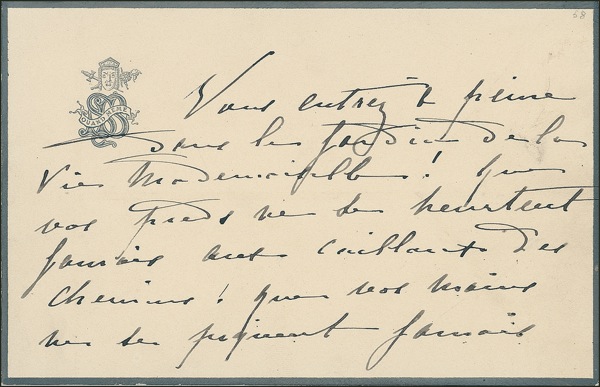 58
QUAND MÊME
SB
Vous entrez à peine
dans le jardin de la
Vie Mademoiselle ! que
vos pieds ne se heurtent
jamais aux cailloux des
chemins ! que vos mains
ne se piquent jamais